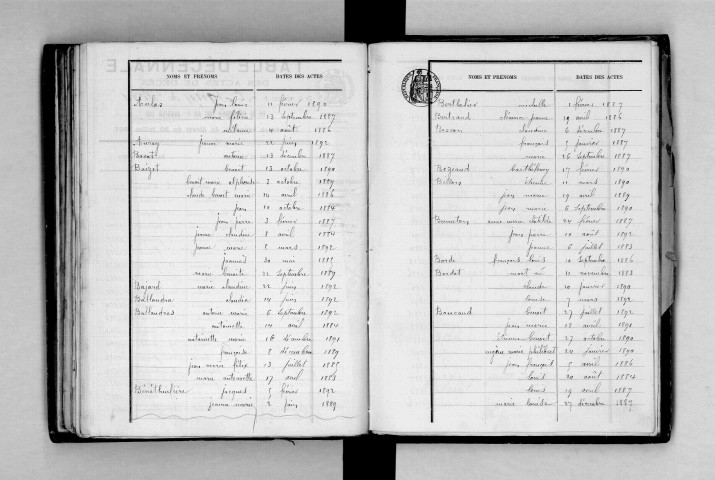 NOMS ET PRÉNOMS DATES DES ACTES
jean louis 11 février 1890
marie 13 septembre 1887
4 août 1886
jeanne marie 22 juin 1892
antoine 13 décembre 1887
benoit 13 octobre 1890
benoit marie alphonse 2 octobre 1889
claude benoit marie 14 avril 1886
jean 10 octobre 1884
jean pierre 3 février 1887
jeanne claudine 8 avril 1884
jeanne marie 8 mars 1892
30 mai 1885
marie benoite 22 septembre 1889
Bajard marie claudine 22 juin 1892
Ballandra claudia 14 juin 1892
Ballandras antoine marie 6 septembre 1892
antoinette 14 avril 1884
antoinette marie 16 décembre 1891
françoise 8 décembre 1889
jean marie félix 13 juillet 1885
marie antoinette 17 avril 1888
jacques 5 février 1892
jeanne marie 2 juin 1889
NOMS ET PRÉNOMS DATES DES ACTES
Berthelier 1 février 1887
Bertrand jeanne 19 avril 1886
Besson claudine 6 décembre 1887
françois 5 janvier 1887
marie 16 septembre 1887
barthélemy 17 février 1890
étienne 11 mars 1890
jean marie 19 avril 1889
jean marie 6 septembre 1890
anne marie clotilde 24 février 1887
jean pierre 10 août 1892
jeanne 6 juillet 1883
Borde françois louis 10 septembre 1886
Bordat mort né 11 novembre 1883
claude 10 janvier 1890
louise 7 mars 1892
Boucaud benoit 27 juillet 1892
jean marie 18 avril 1891
benoit 27 octobre 1890
marie philibert 24 janvier 1890
jean françois 5 avril 1886
louis 20 août 1884
louis 19 avril 1887
marie louise 27 décembre 1887